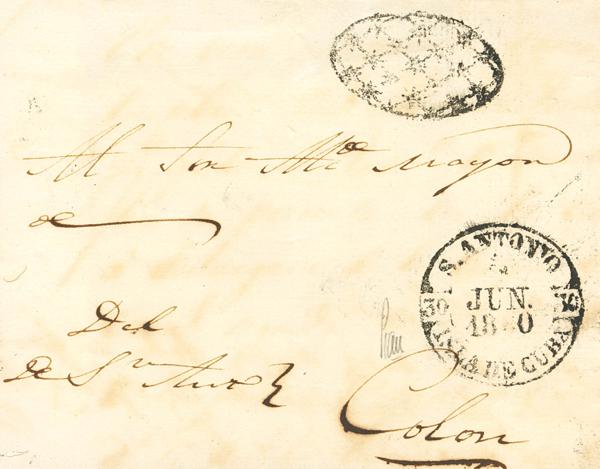 Al Sor Alce mayor
de
Del
de Sn Anto
Colon
S. ANTONIO
JUN.
ISLA DE CUBA